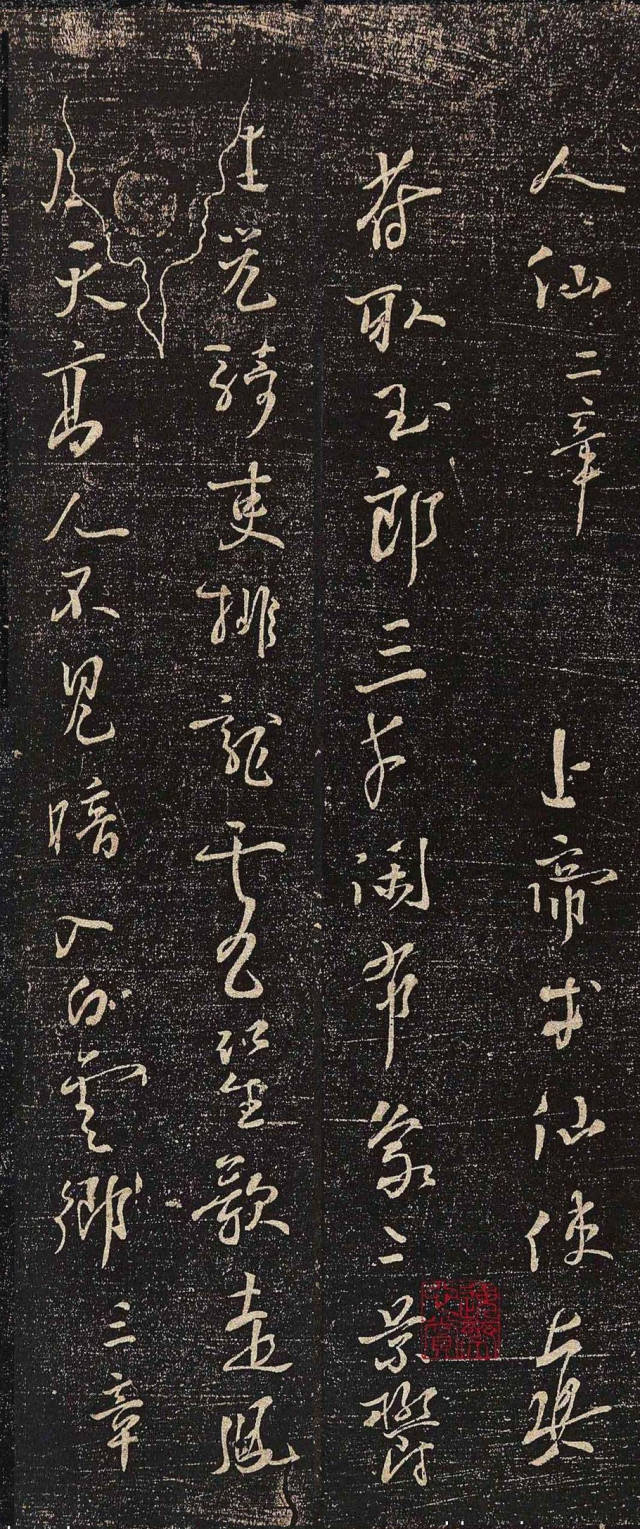 人仙 二章 上帝求仙使真
符取玉郎三才閑布象二景鬱
生光騎吏排龍虎笙歌走鳳
凰天高人不見暗入白雲鄉 三章